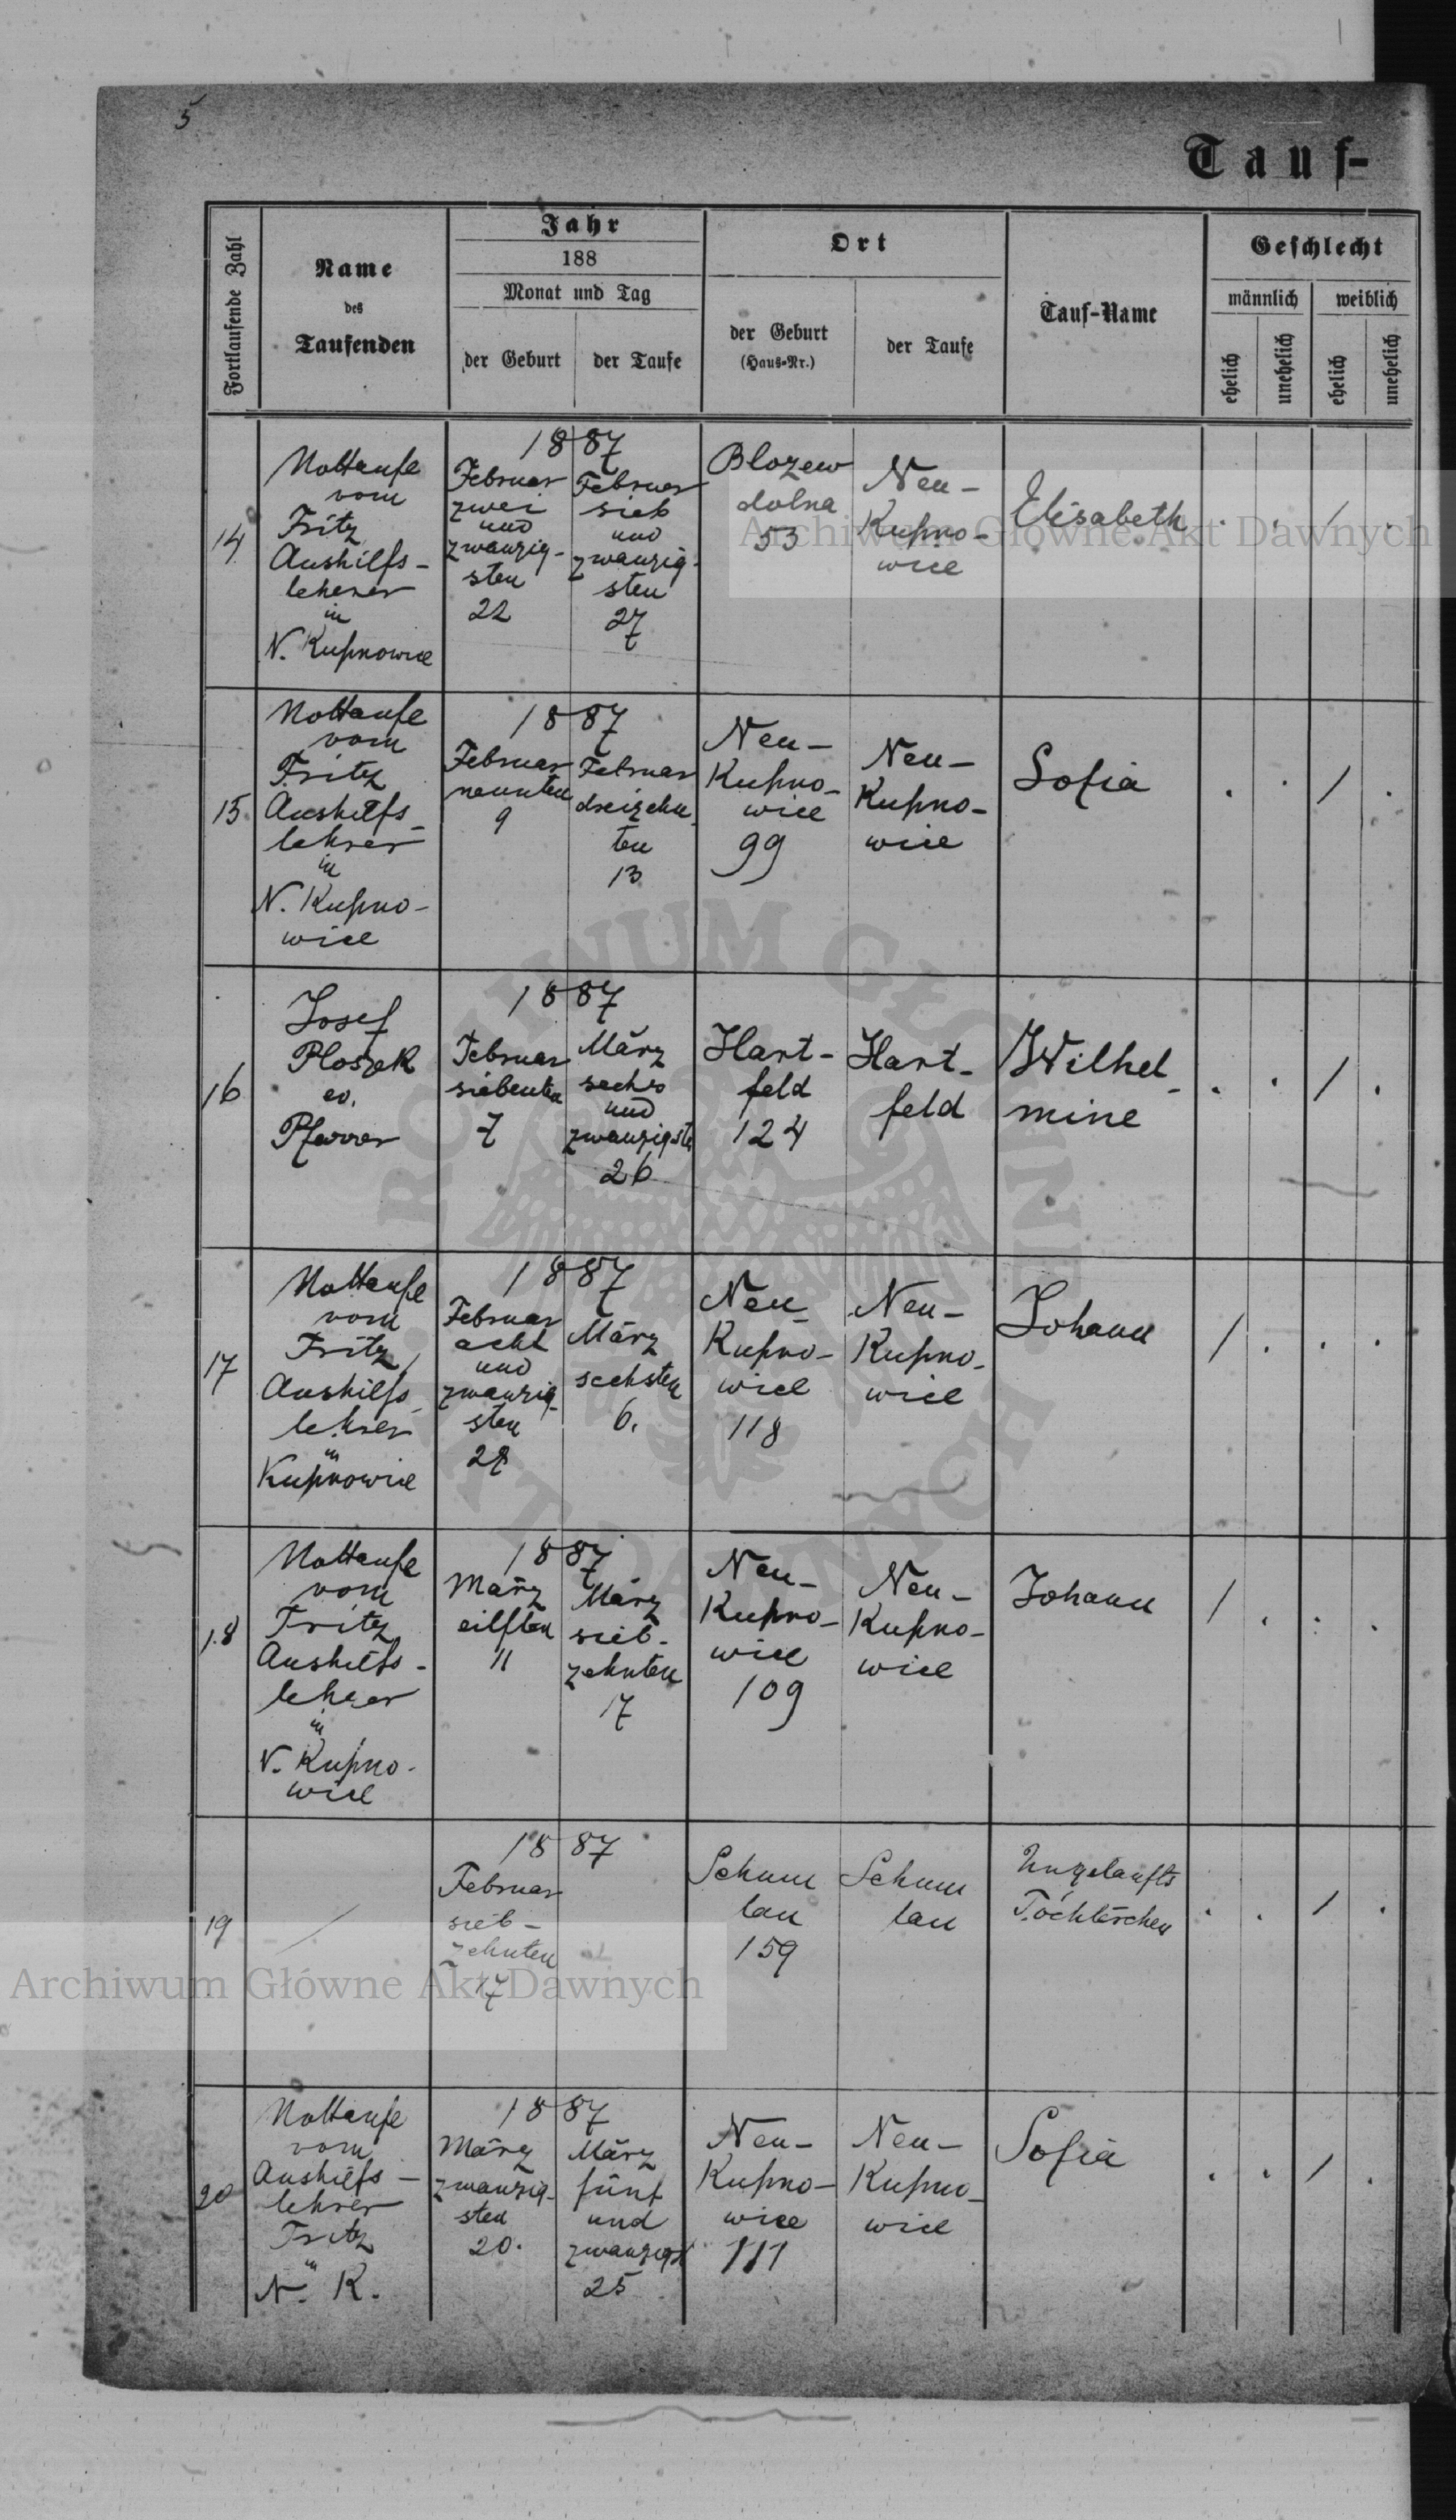 5
Tauf-
Fortlaufende Zahl
Name
des
Taufenden
Jahr
188
Monat und Tag
der Geburt
der Taufe
Ort
der Geburt
(Haus-Nr.)
der Taufe
Tauf-Name
Geschlecht
männlich
weiblich
ehelich
unehelich
ehelich
unehelich
14
Nottaufe
vom
Fritz
Aushilfs-
lehrer
in
N. Kupnowice
1887
Februar
zwei
und
zwanzig-
sten
22
Februar
sieb
und
zwanzig-
sten
27
Blozew
dolna
53
Neu-
Kupno-
wice
Elisabeth
. . / .
15
Nottaufe
vom
Fritz
Aushilfs-
lehrer
in
N. Kupno-
wice
1887
Februar
neunten
9
Februar
dreizehn-
ten
13
Neu-
Kupno-
wice
99
Neu-
Kupno-
wice
Sofia
. . / .
16
Josef
Ploszek
ev.
Pfarrer
1887
Februar
siebenten
7
März
sechs
und
zwanzigsten
26
Hart-
feld
124
Hart-
feld
Wilhel-
mine
. . / .
17
Nottaufe
vom
Fritz
Aushilfs-
lehrer
in
Kupnowice
1887
Februar
acht
und
zwanzig-
sten
28
März
sechsten
6.
Neu-
Kupno-
wice
118
Neu-
Kupno-
wice
Johann
/ . . .
18
Nottaufe
vom
Fritz
Aushilfs-
lehrer
in
N. Kupno-
wice
1887
März
eilften
11
März
sieb-
zehnten
17
Neu-
Kupno-
wice
109
Neu-
Kupno-
wice
Johann
/ . . .
19
/
1887
Februar
sieb-
zehnten
17
Schum
lau
159
Schum
lau
Ungetaufts
Töchterchen
. . / .
20
Nottaufe
vom
Aushilfs-
lehrer
Fritz
in
N. K.
1887
März
zwanzig-
sten
20.
März
fünf
und
zwanzigst
25
Neu-
Kupno-
wice
111
Neu-
Kupno-
wice
Sofia
. . / .
Archiwum Główne Akt Dawnych
ARCHIWUM GŁÓWNE AKT DAWNYCH
Archiwum Główne Akt Dawnych